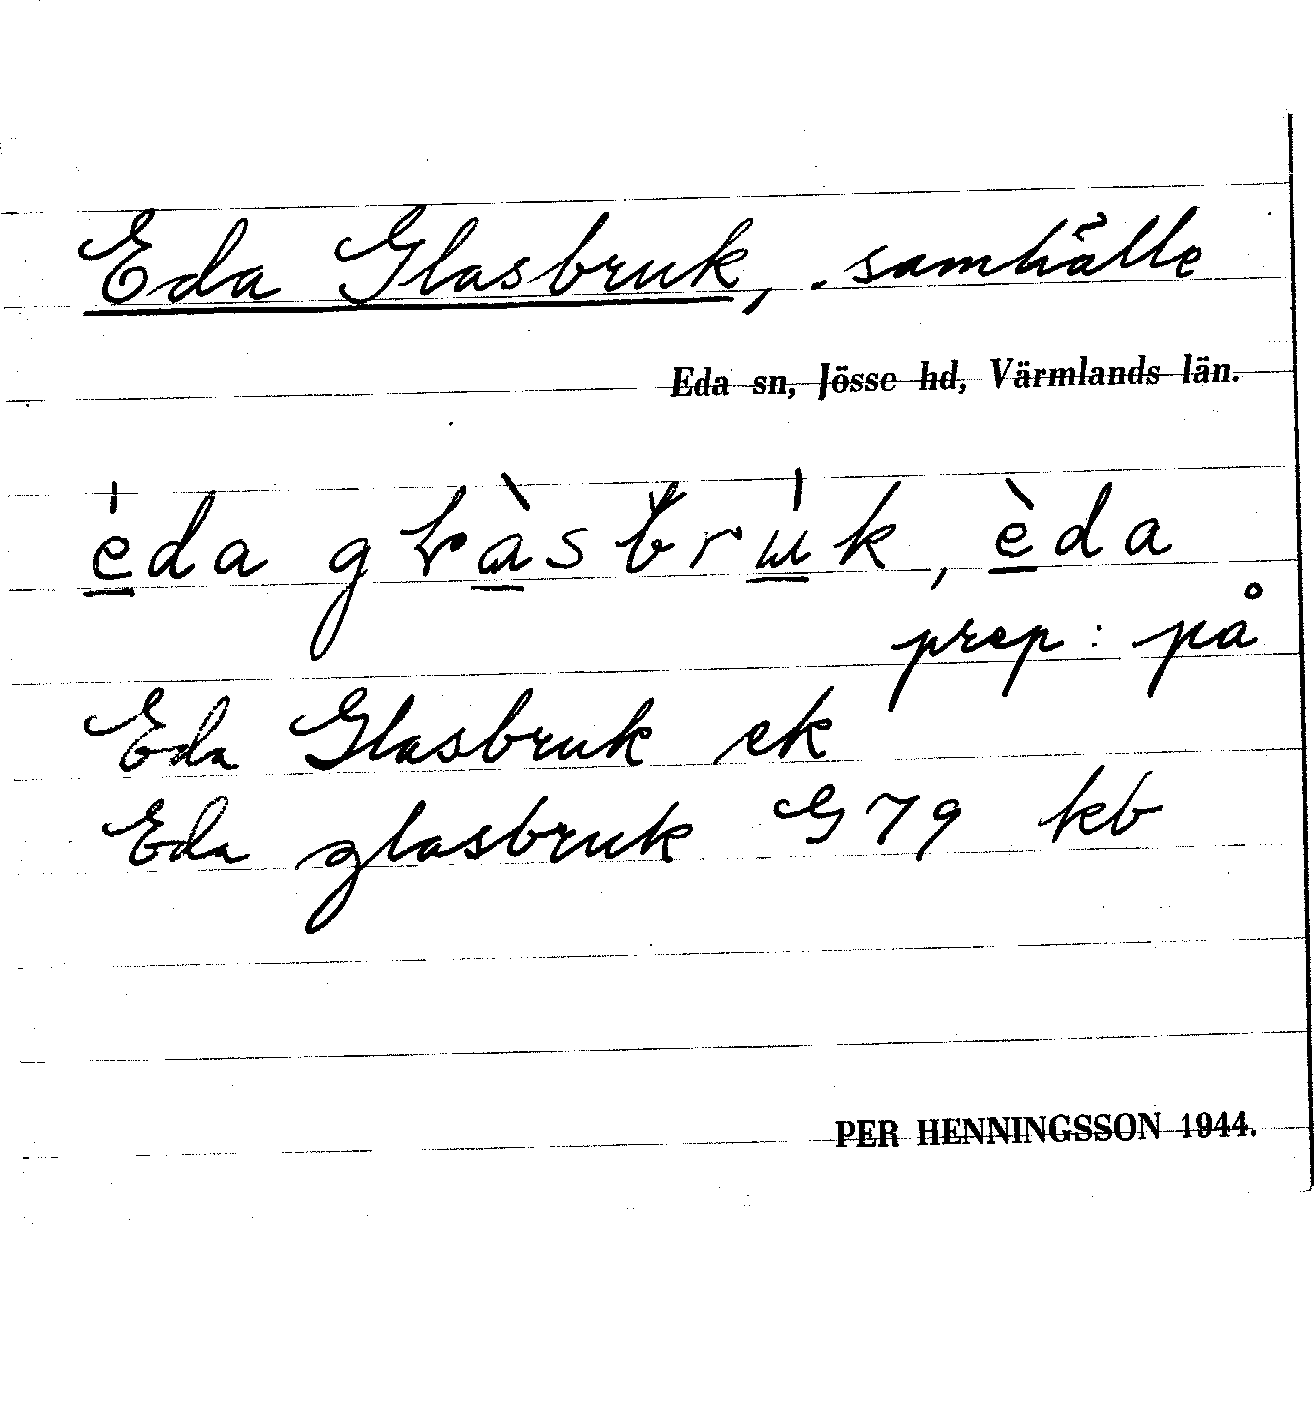 Eda Glasbruk, samhälle
Eda sn, Jösse hd, Värmlands län.
éda gɫàsbrúk, èda
prep: på
Eda Glasbruk ek
Eda glasbruk G79 kb
PER HENNINGSSON 1944.